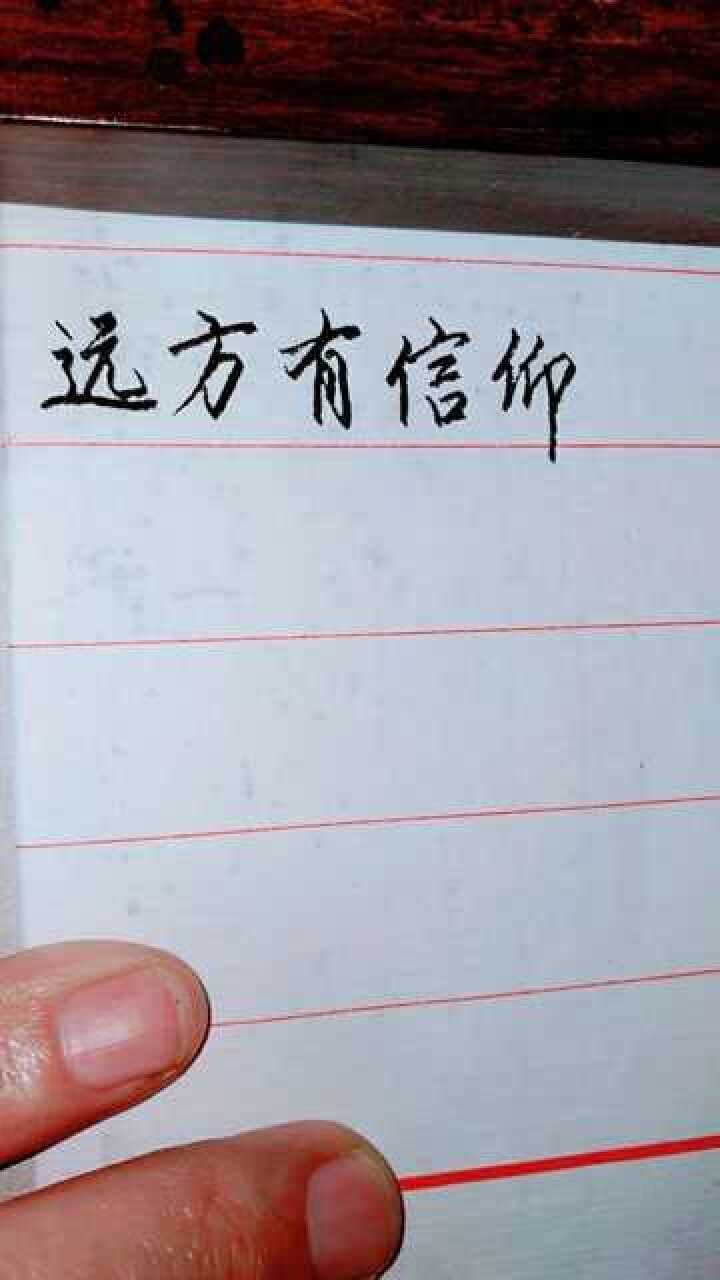 远方有信仰